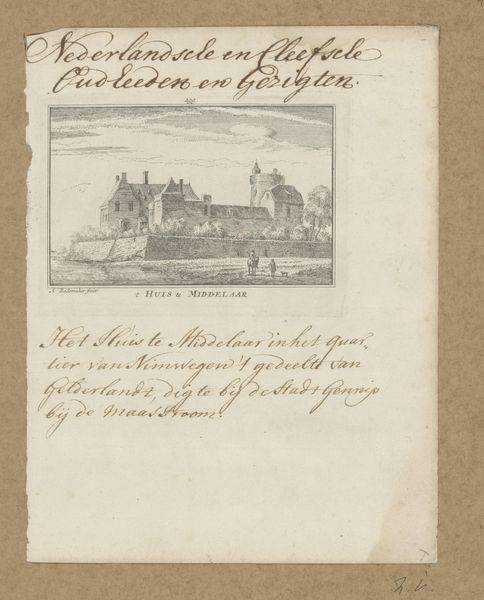 Nederlandsche en Cleefsche
Oudheeden en Gezigten.
A. Rademaker fecit
't HUIS te MIDDELAAR
Het Huis te Middelaar in het quar-
tier van Nimwegen 't gedeelte van
Gelderlandt, digte bij de Stadt Gennip
bij de Maas Stroom.